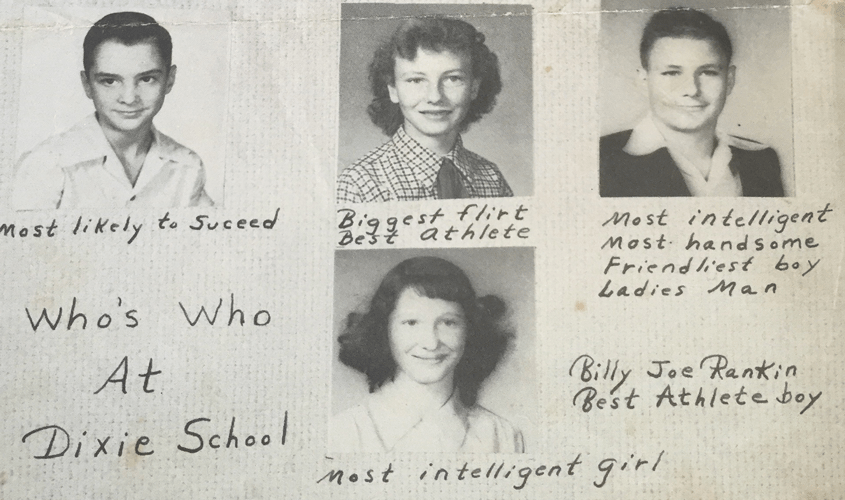 Most likely to Suceed
Biggest flirt
Best athlete
Most intelligent
Most handsome
Friendliest boy
Ladies Man
Who's Who
At
Dixie School
Billy Joe Rankin
Best Athlete boy
Most intelligent girl